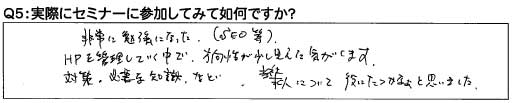 Q5:実際にセミナーに参加してみて如何ですか?
非常に勉強になった。(SEO等)
HPを管理していく中で、方向性が少し見えた気がします。
対策、必要な知識、など 求人について 役にたつかなぁと思いました。